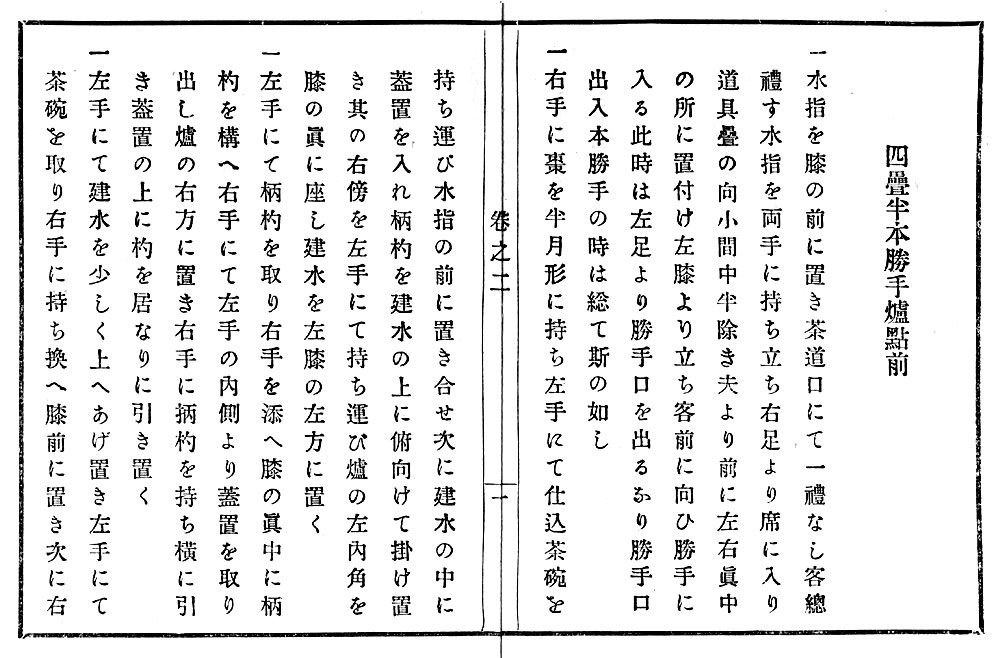 四疊半本勝手爐點前
一水指を膝の前に置き茶道口にて一禮なし客總
禮す水指を両手に持ち立ち右足より席に入り
道具疊の向小間中半除き夫より前に左右眞中
の所に置付け左膝より立ち客前に向ひ勝手に
入る此時は左足より勝手口を出るなり勝手口
出入本勝手の時は総て斯の如し
一右手に棗を半月形に持ち左手にて仕込茶碗を
卷之二
一
持ち運び水指の前に置き合せ次に建水の中に
蓋置を入れ柄杓を建水の上に俯向けて掛け置
き其の右傍を左手にて持ち運び爐の左內角を
膝の眞に座し建水を左膝の左方に置く
一左手にて柄杓を取り右手を添へ膝の眞中に柄
杓を構へ右手にて左手の內側より蓋置を取り
出し爐の右方に置き右手に柄杓を持ち横に引
き葢置の上に杓を居なりに引き置く
一左手にて建水を少しく上へあげ置き左手にて
茶碗を取り右手に持ち換へ膝前に置き次に右